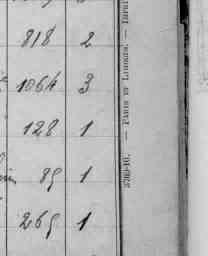 818 2
1064 3
128 1
85 1
265 1
5769-16. — PARIS ET LIMOGES. — IMPRI